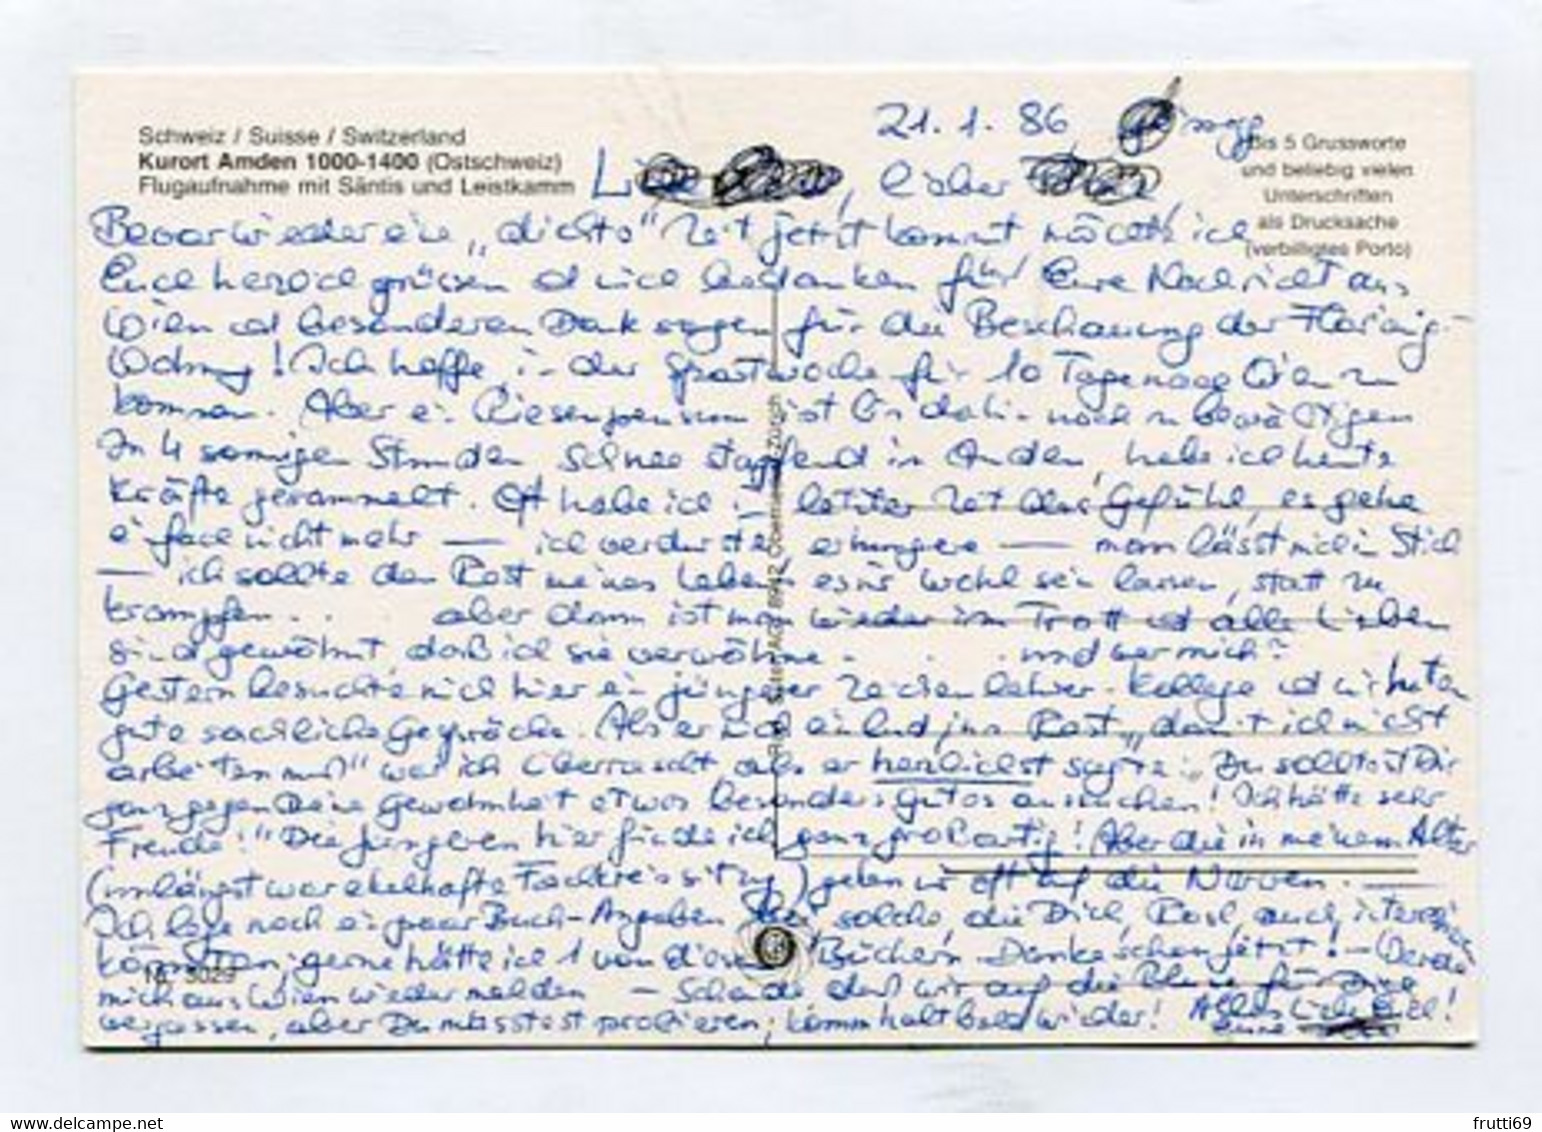 21. 1. 86
Schweiz / Suisse / Switzerland
Kurort Amden 1000-1400 (Ostschweiz)
Flugaufnahme mit Säntis und Leistkamm
Bis 5 Grussworte
und beliebig vielen
Unterschriften
als Drucksache
(verbilligtes Porto)
Liebe , lieber
Bevor wieder eine „dichte" Zeit jetzt kommt möchte ich
Euch herzlich grüssen und mich bedanken für Eure Nachricht aus
Wien und besonderen Dank sagen für die Beschauung der
Wohnung! Ich hoffe, in der Sportwoche für 10 Tage nach Wien zu
kommen. Aber ein Riesenpensum ist bis dahin noch zu bewältigen
In 4 sonnigen Stunden, Schnee stapfend in Amden, habe ich heute
Kräfte gesammelt. Oft habe ich in letzter Zeit das Gefühl, es gehe
einfach nicht mehr — ich verdurste, erhungere — man lässt mich im Stich
— ich sollte den Rest meines Lebens es mir wohl sein lassen, statt zu
krampfen . . aber dann ist man wieder im Trott und alle Lieben
sind gewöhnt, daß ich sie verwöhne . . . . und wer mich?
Gestern besuchte mich hier ein jüngerer Zeichenlehrer-Kollege und wir hatten
gute sachliche Gespräche. Als er mich einlud ins Rest. „damit ich nicht
arbeiten muß" war ich überrascht als er herzlichst sagte: „Du solltest Dir
ganz gegen Deine Gewohnheit etwas besonders gutes aussuchen! Ich hätte sehr
Freude!" Die Jüngeren hier finde ich ganz großartig! Aber die in meinem Alter
(unlängst war ekelhafte Fachkreissitzg) gehen mir oft auf die Nerven. —
Ich lege noch ein paar Buch-Angaben bei, solche, die Dich, auch, interessieren
könnten; gerne hätte ich 1 von diesen Büchern. Danke schon jetzt! – Werde
mich aus Wien wieder melden — Schade daß wir auf die Bluse für Dine
vergassen, aber Du müsstest probieren; komm halt bald wieder! Alles Liebe Euch!
Eure
Nr. 3029
frutti69